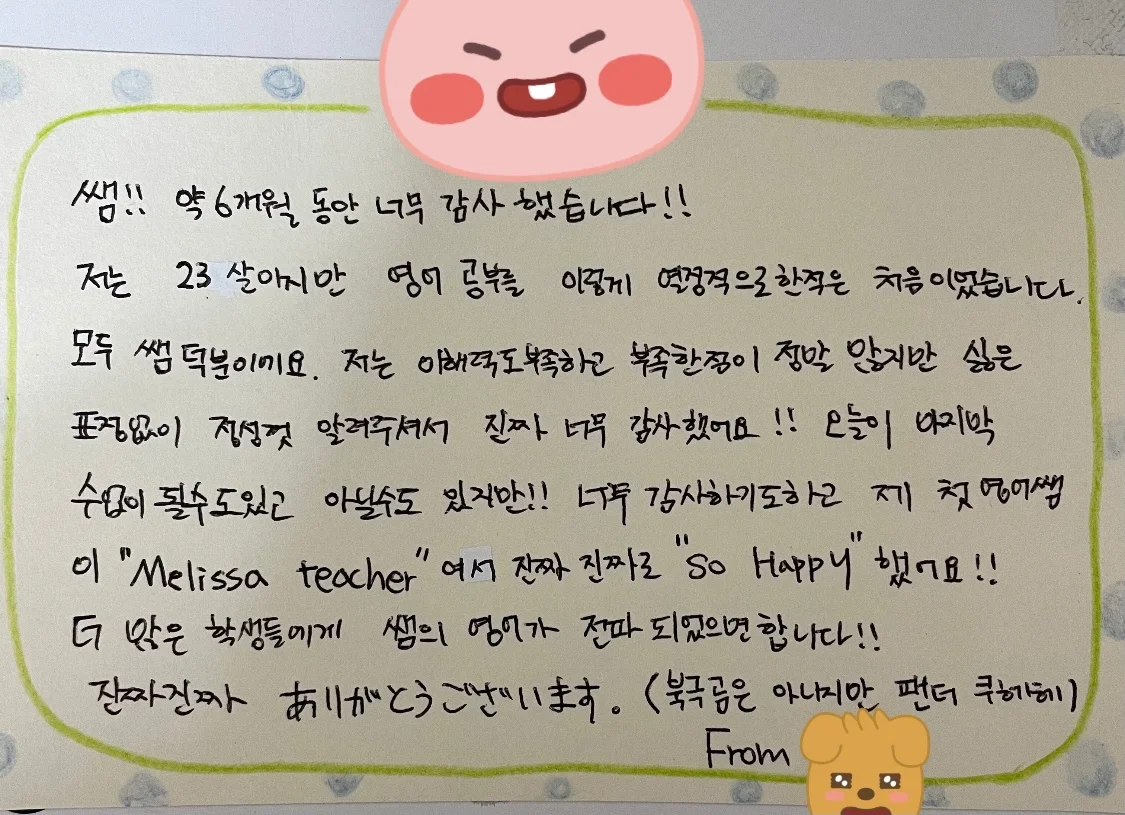 쌤!! 약 6개월 동안 너무 감사 했습니다!!
저는 23살아지만 영어 공부를 이렇게 열정적으로한적은 처음이었습니다.
모두 쌤 덕분이에요. 저는 이해력도부족하고 부족한점이 정말 많지만 싫은
표정없이 정성껏 알려주셔서 진짜 너무 감사했어요!! 오늘이 마지막
수업이 될수도있고 아닐수도 있지만!! 너무 감사하기도하고 제 첫 영어쌤
이 "Melissa teacher"여서 진짜 진짜로 "So Happy"했어요!!
더 많은 학생들에게 쌤의 영어가 전파 되었으면합니다!!
진짜진짜 ありがとうございます。(북극곰은 아니지만 팬더 쿠헤헤)
From